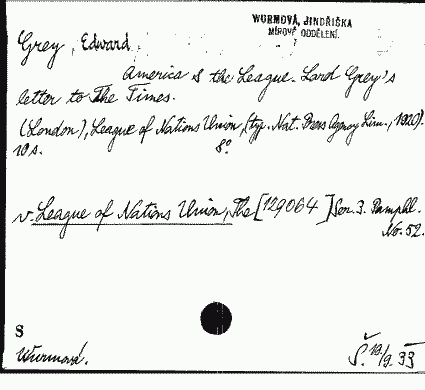 WURMOVÁ, JINDŘIŠKA
MÍROVÉ ODDĚLENÍ.
Grey, Edward
America & the League. Lord Grey's
letter to The Times.
(London), League of Nations Union, (typ. Nat. Press Agency Lim., 1920).
10 s. 8°.
v. League of Nations Union, The [129064] Ser. 3. Pamphl.
No. 52.
S
Wurmová.
Š. 19/9 33